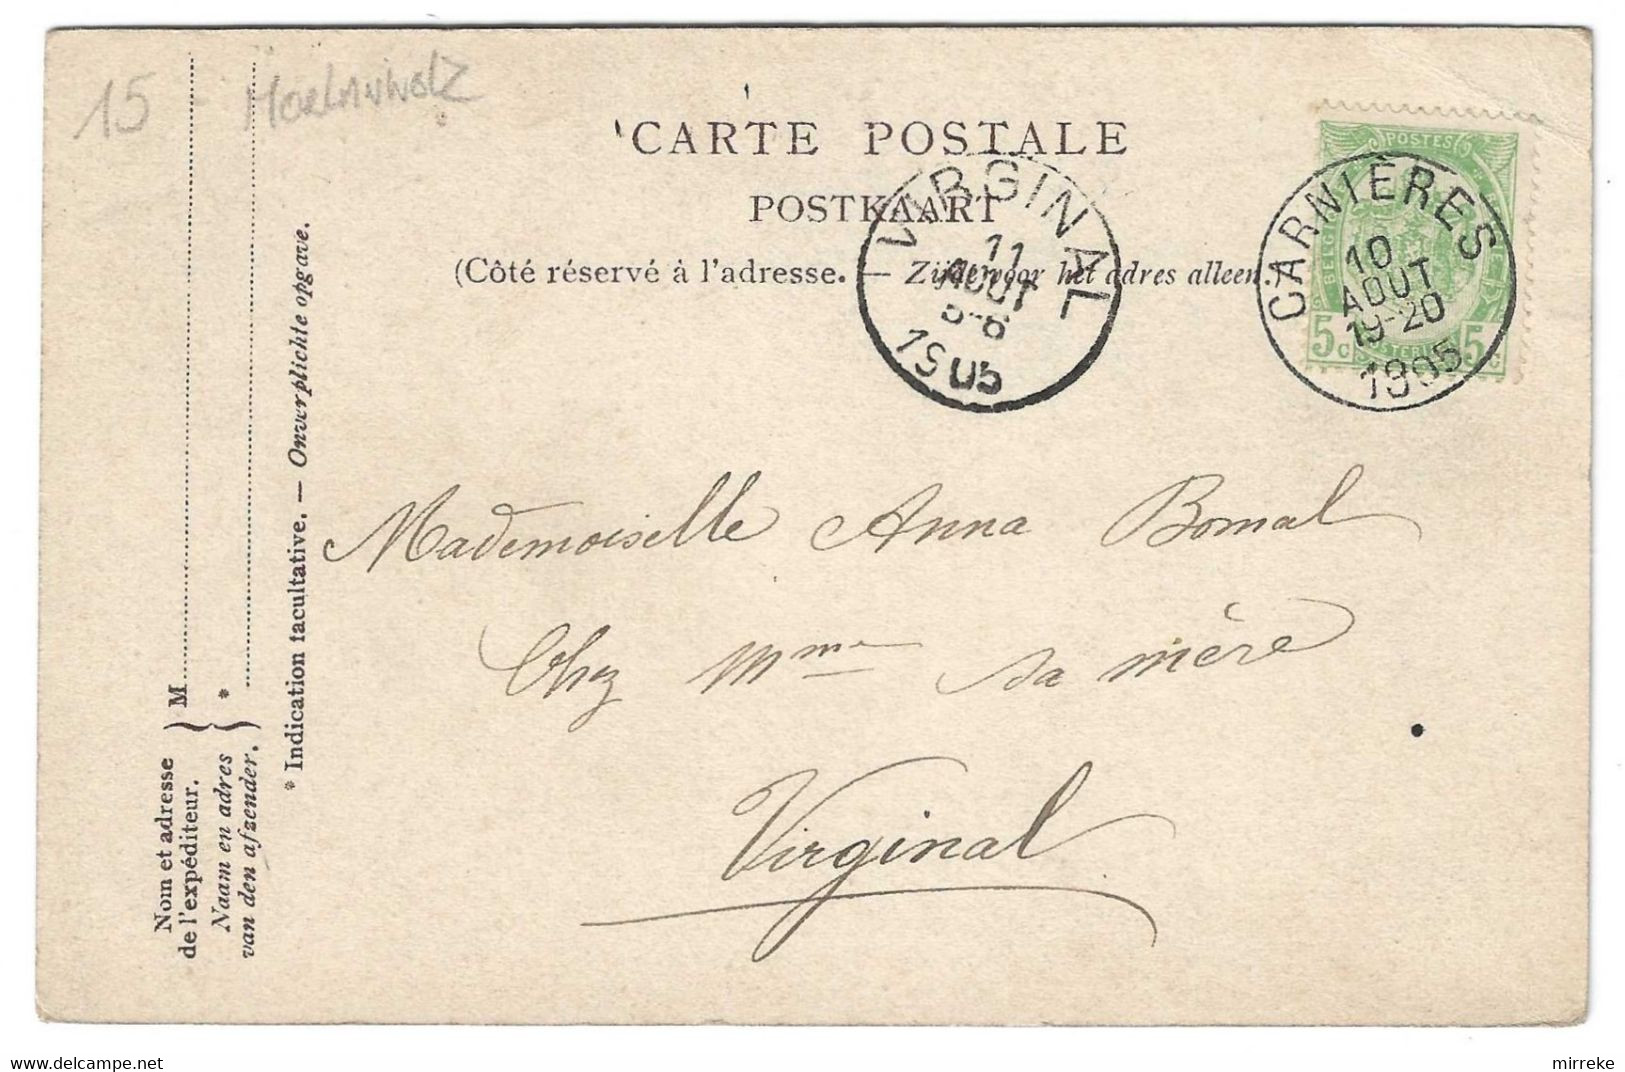 15 -
CARTE POSTALE
POSTKAART
(Côté réservé à l'adresse. — Zijde voor het adres alleen.)
VIRGINAL
11
AOUT
5-6
1905
CARNIÈRES
10
AOUT
19-20
1905
POSTES
5c
5c
Mademoiselle Anna Bomal
Chez Mme sa mère
Virginal
Nom et adresse
de l'expéditeur.
M
Naam en adres
van den afzender.
*
* Indication facultative. — Onverplichte opgave.
delcampe.net
mirreke